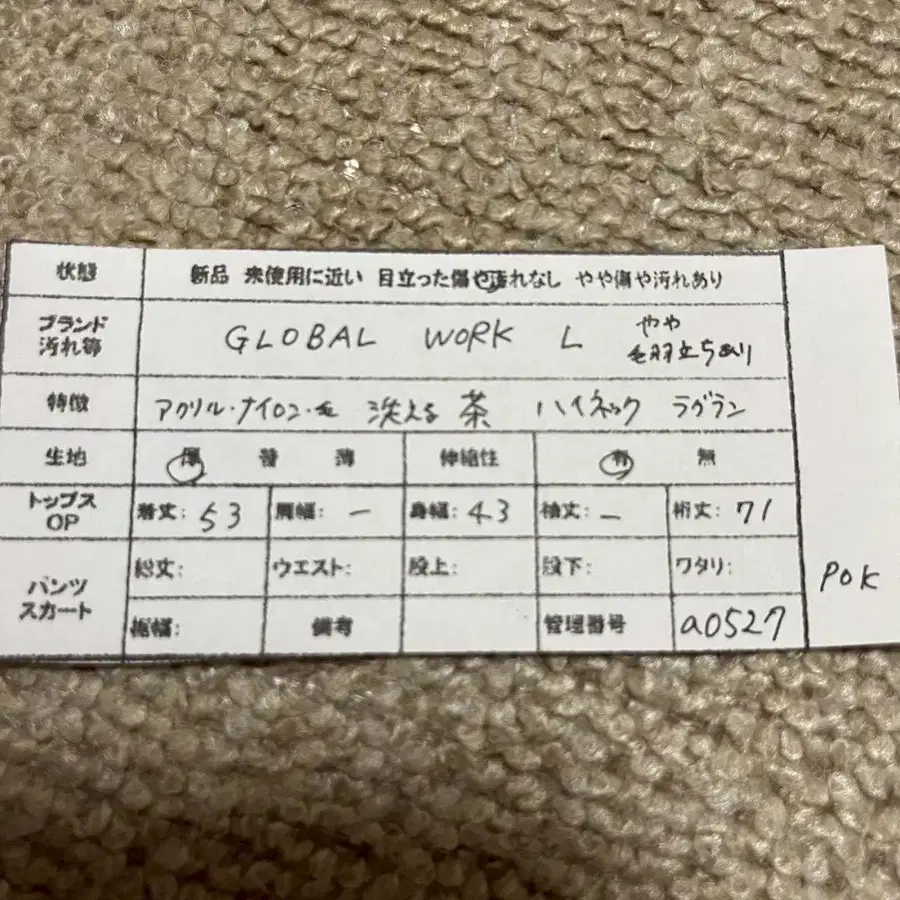 状態 新品 未使用に近い 目立った傷や汚れなし やや傷や汚れあり
ブランド 汚れ等 GLOBAL WORK L やや 毛羽立ちあり
特徴 アクリル・ナイロン・毛 洗える 茶 ハイネック ラグラン
生地 厚 普 薄 伸縮性 有 無
トップス OP 着丈: 53 肩幅: ー 身幅: 43 袖丈: ー 裄丈: 71
パンツ スカート 総丈: ウエスト: 股上: 股下: ワタリ:
裾幅: 備考 管理番号 a0527
POK